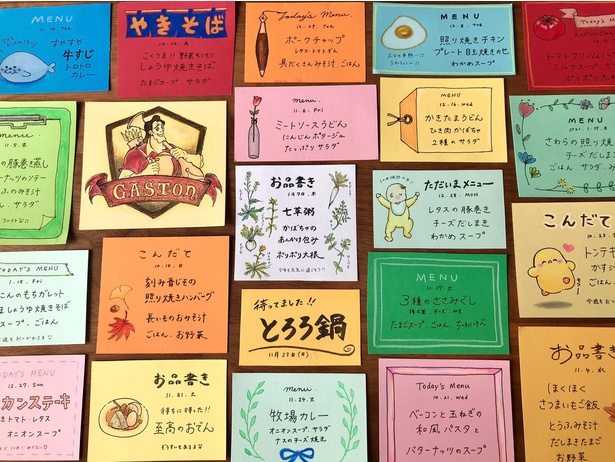 すやすや
牛すじ
トロトロ
カレー
やきそば
こくうま!! 野菜モリモリ
しょうゆ焼きそば
たまごスープ サラダ
Today's Menu.
ポークチャップ
レタストマトぞえ
具だくさんみそ汁、ごはん
MENU
照り焼きチキン
プレート目玉焼きのせ
わかめスープ
Today's Menu
の豚巻き蒸し
GASTON
menu.
11.6. Fri
ミートソースうどん
にんじんポタージュ
たっぷりサラダ
MENU
12.16. wed
かきたまうどん
ひき肉かぼちゃ
2種のサラダ
MENU
さわらの照り焼き
チーズだし巻
ごはん、サラダ、み
お品書き
1月7日、木
七草粥
かぼちゃの
あんかけ包み
ポリポリ大根
ただいまメニュー
12.28. MON
レタスの豚巻き
チーズだしまき
わかめスープ
こんだて
TODAY'S MENU
このもちガレット
しょうゆ焼きそば
スープ、ごはん
こんだて
10.18.日
刻み昔むの
照り焼きハンバーグ
長いものおみそ汁
ごはん、お野菜
待ってました!!
とろろ鍋
11月23日(月)
MENU
11.17.火
3種のささみぐし
たまごスープ ごはん
TODAY'S MENU
12.27. Sun
カンステーキ
きトマト・レタス
オニオンスープ
お品書き
11.21.土
待ちに待った!!
至高のおでん
menu.
11.24.火
牧場カレー
オニオンスープ サラダ
ナスのチーズ焼き
Today's Menu
10.21. Wed
ベーコンと玉ねぎの
和風パスタと
バターナッツのスープ
お品書き
11.4.水
ほくほく
さつまいもご飯
とうふみそ汁
だしまきたまご
お野菜